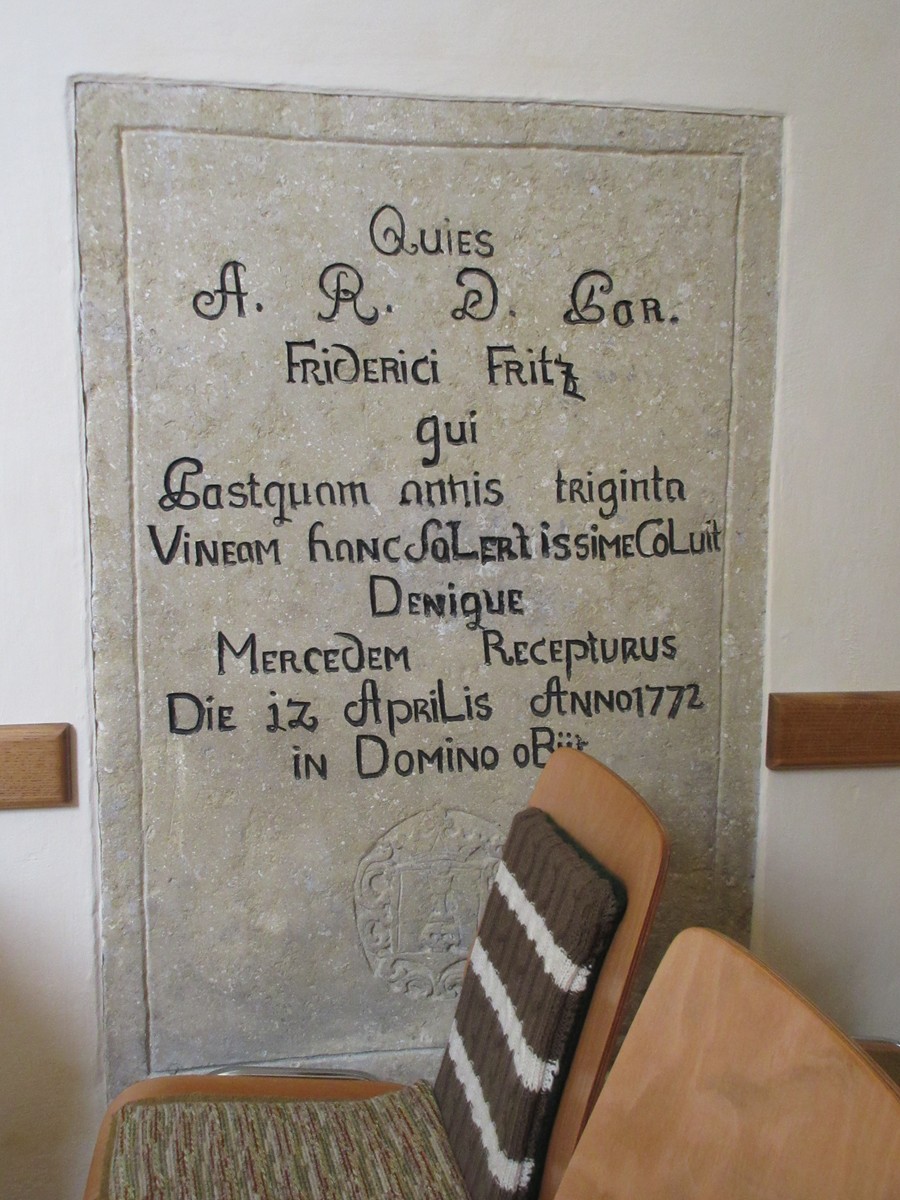 Quies
A. R. D. Par.
Friderici Fritz
qui
Pastquam annis triginta
Vineam hanc SoLertissime CoLuit
Denique
Mercedem Recepturus
Die 12 ApriLis Anno 1772
in Domino oBijt